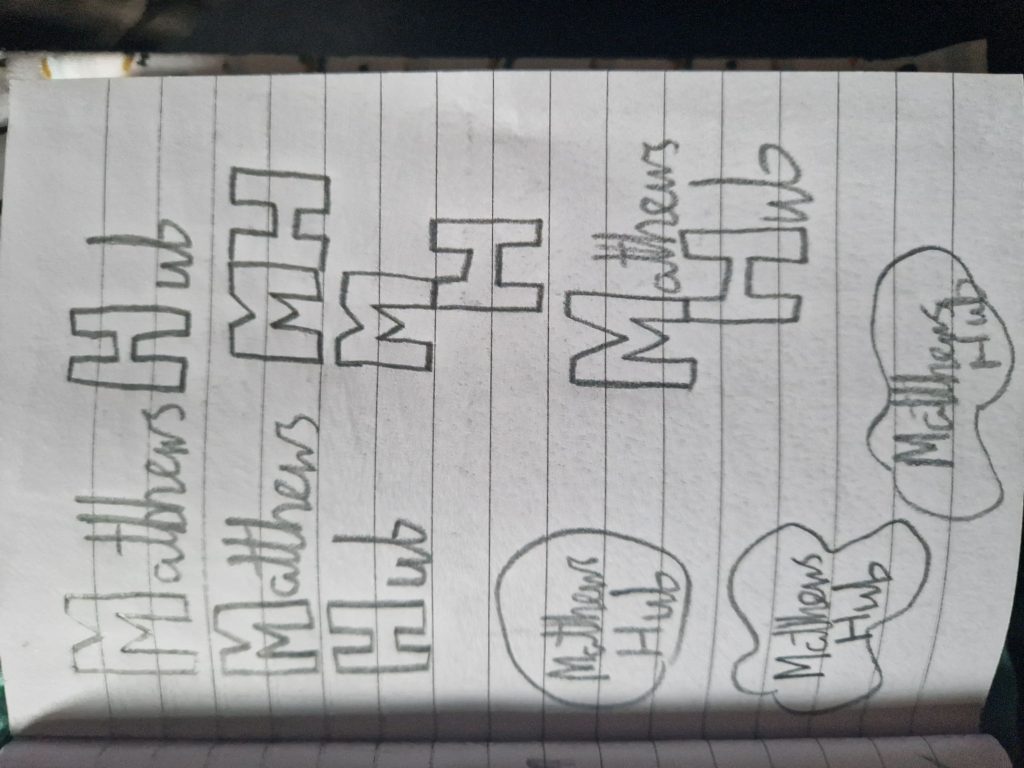 Matthews Hub
Matthews
Hub
MH
M
H
Matthews
Hub
Matthews
Hub
Matthews
Hub
Matthews
Hub